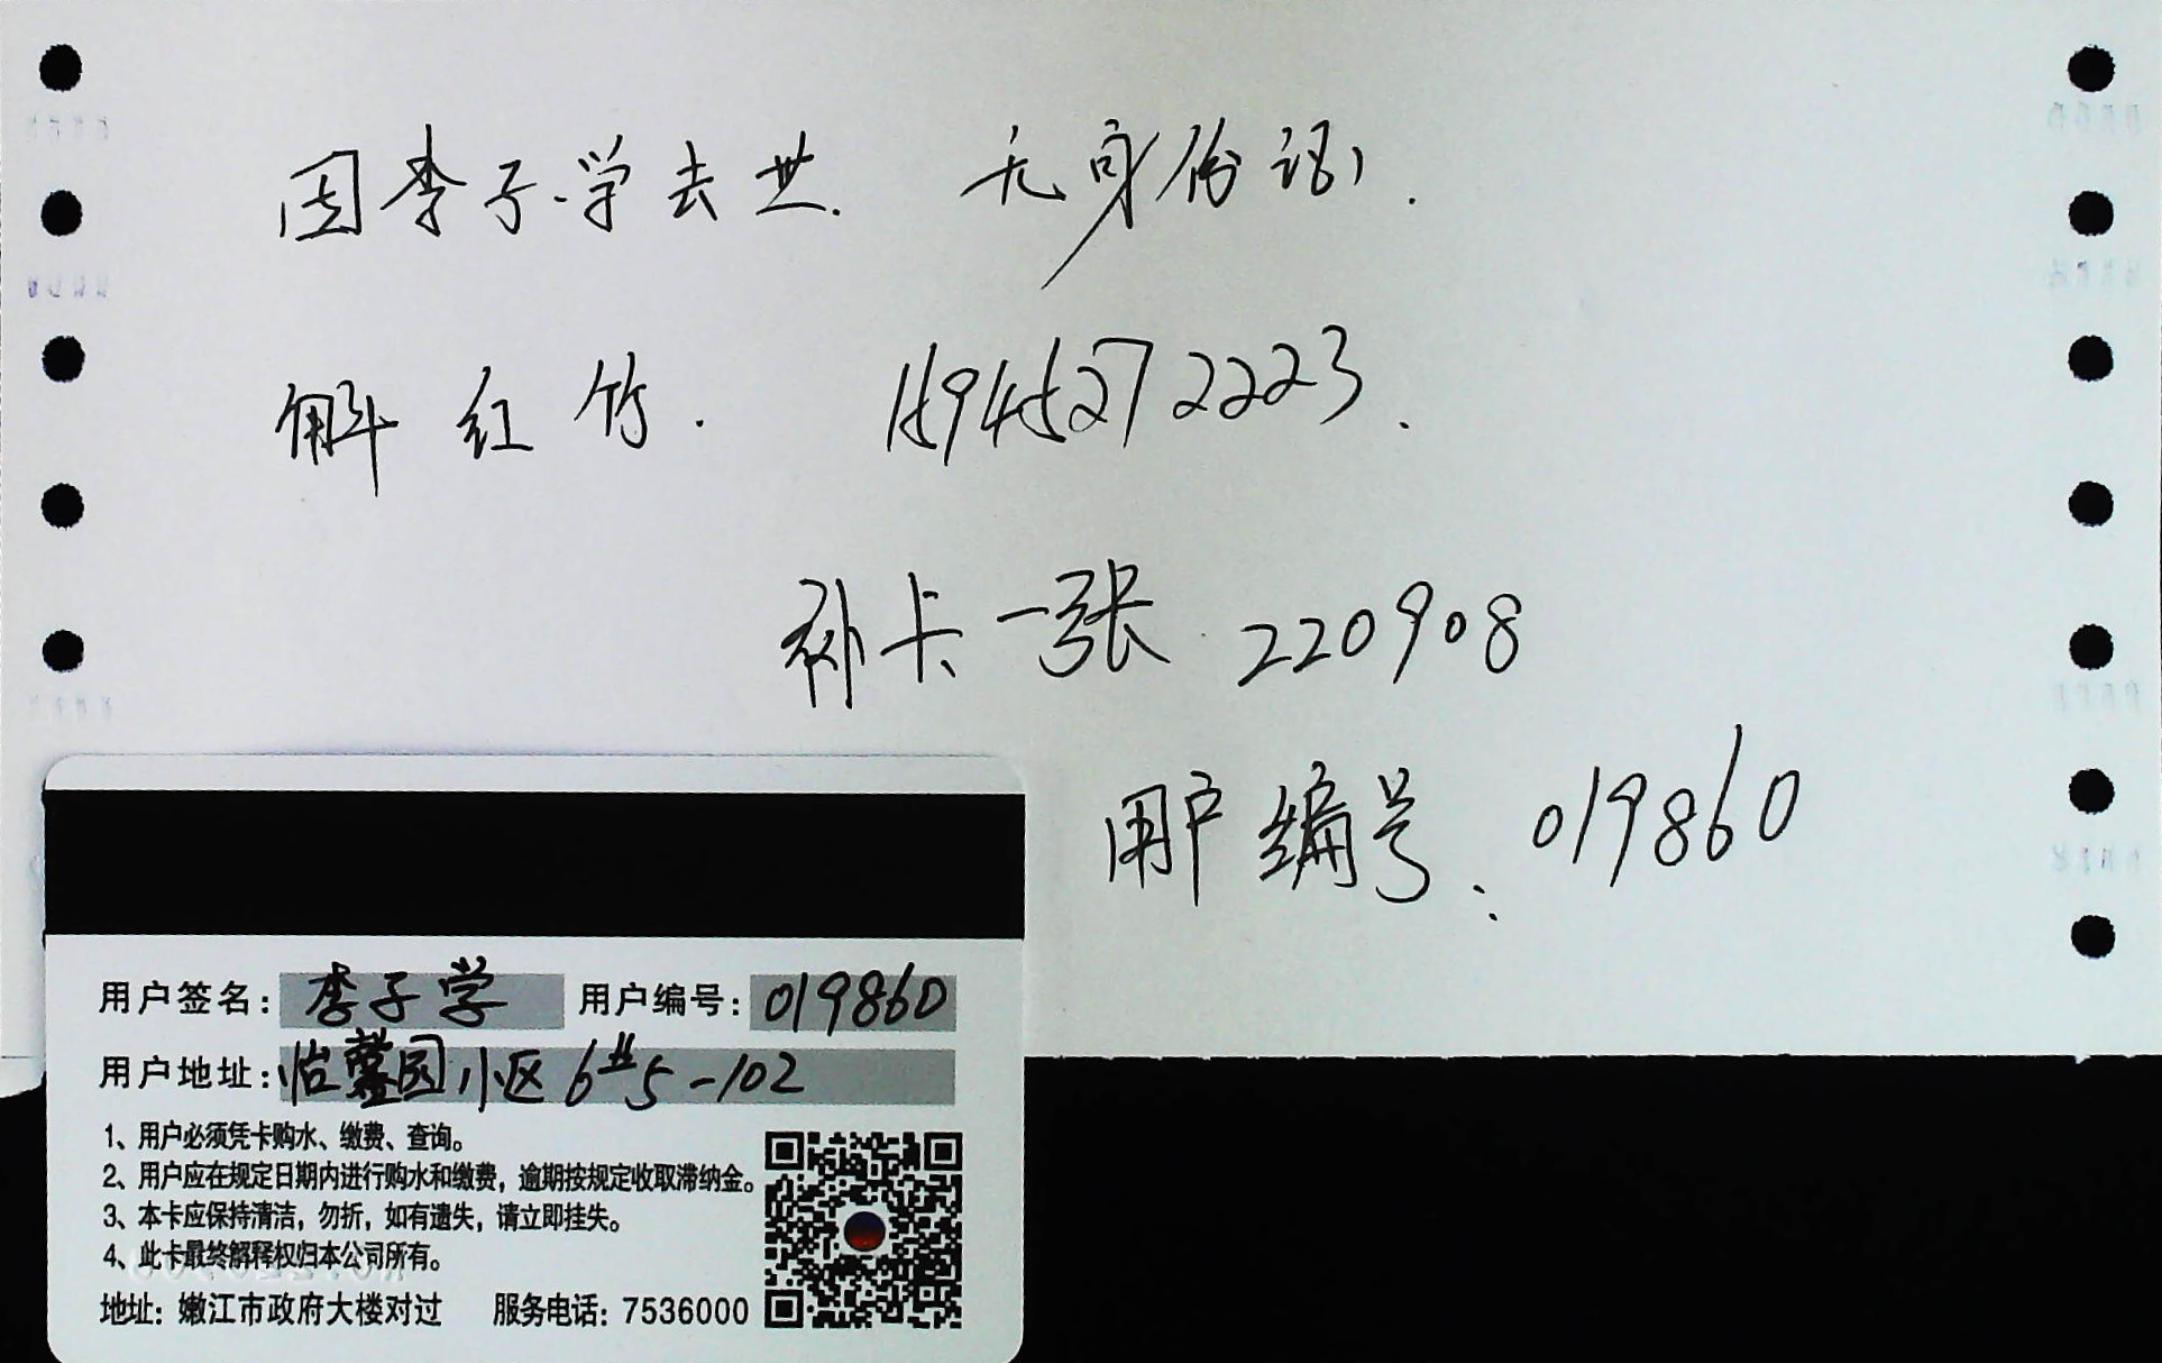 因李子学去世. 无身份证.
解红竹. 15945272223.
补卡一张 220908
用户编号: 019860
用户签名: 李子学 用户编号: 019860
用户地址: 怡馨园小区6#5-102
1、用户必须凭卡购水、缴费、查询。
2、用户应在规定日期内进行购水和缴费，逾期按规定收取滞纳金。
3、本卡应保持清洁，勿折，如有遗失，请立即挂失。
4、此卡最终解释权归本公司所有。
地址: 嫩江市政府大楼对过 服务电话: 7536000